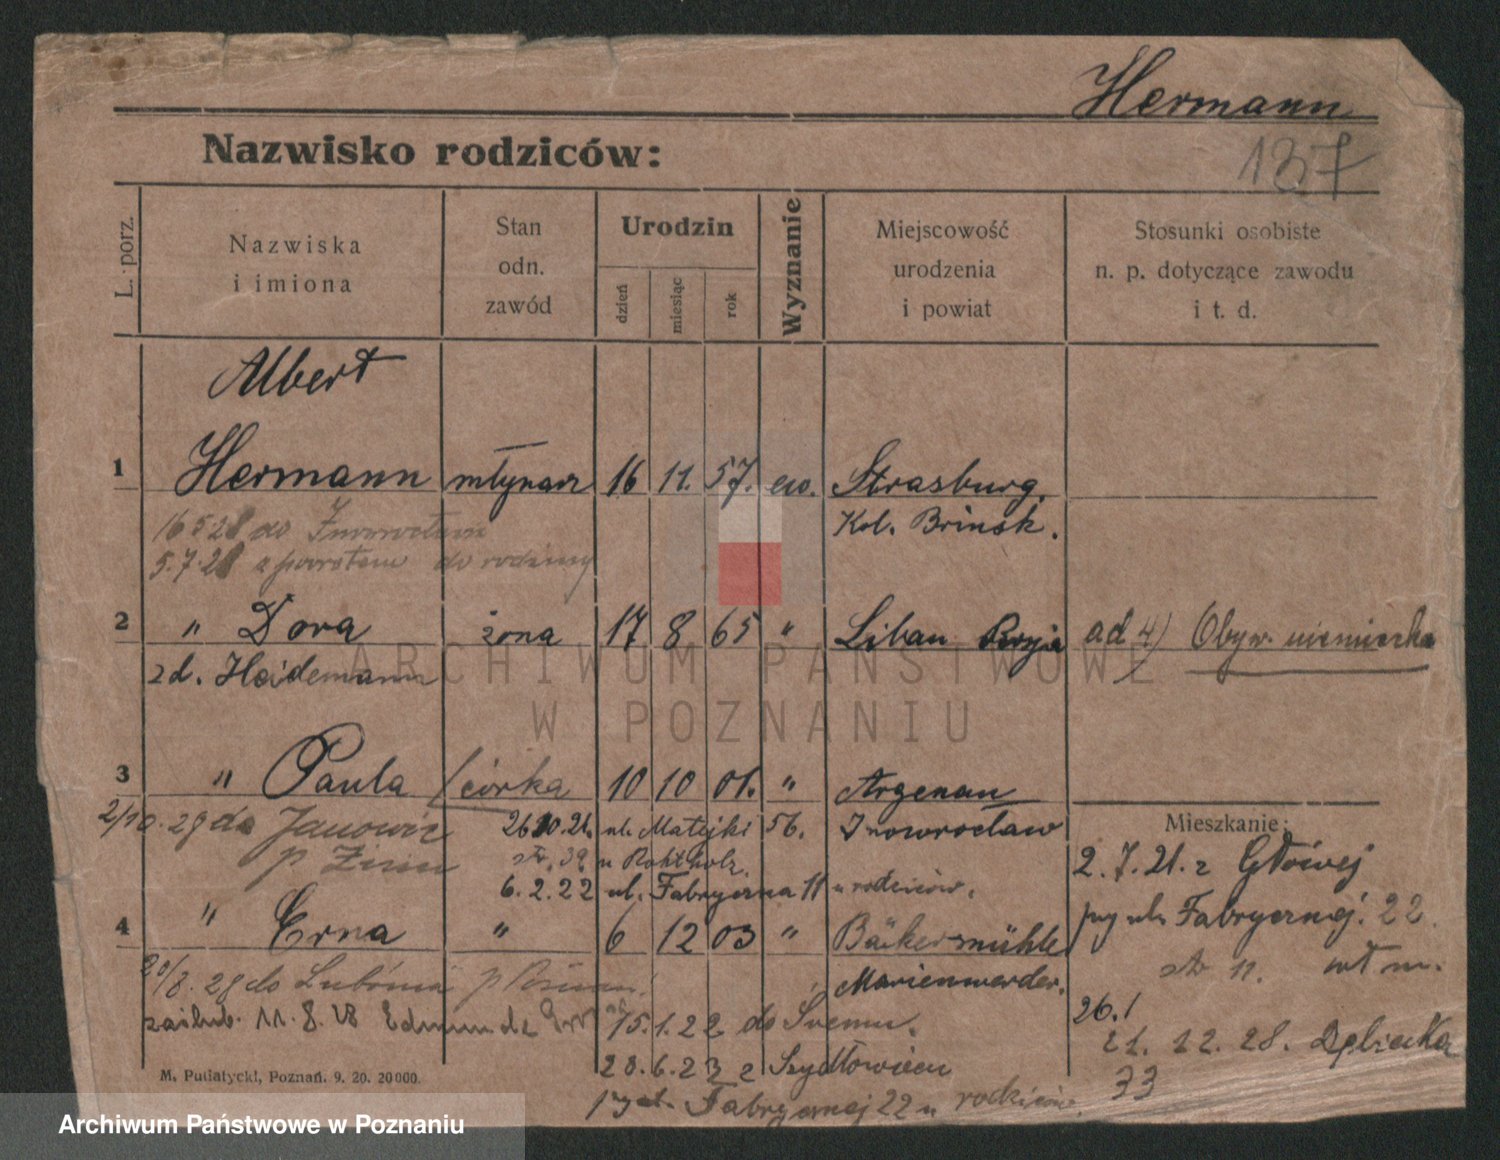 Hermann
137
Nazwisko rodziców:
L. porz.
Nazwiska
i imiona
Stan
odn.
zawód
Urodzin
dzień
miesiąc
rok
Wyznanie
Miejscowość
urodzenia
i powiat
Stosunki osobiste
n. p. dotyczące zawodu
i t. d.
Albert
1 Hermann młynarz 16 11. 57. ew. Strasburg.
Kol. Brinsk.
16 5 28 do Inowrocławia
5.7.28 z powrotem do rodziny
2 " Dora żona 17 8 65 " Liban ad 4) Obyw. niemiecka
zd. Heidemann
3 " Paula córka 10 10 01. " Argenau
Mieszkanie:
2/10. 29 do Janowic 26 10. 21. ul. Matejki 56. Inowrocław
p. Żnin str. 39 u
6. 2. 22 ul. Fabryczna 11 u rodziców.
2. 7. 21. z Głównej
przy ul. Fabrycznej. 22
4 " Erna " 6 12 03 " Bäckermühle
str 11. wł m.
20/8. 28 do Lubonia p
Marienwerder.
zaślub. 11. 8. 28 Edmund
15. 1. 22 do Śremu.
26.1
21. 12. 28. Dąbiecka
33
28. 6. 23 z Szydłowiecu
przy ul. Fabrycznej 22 u rodziców.
M. Putiatycki, Poznań. 9. 20. 20000.
ARCHIWUM PAŃSTWOWE
W POZNANIU
Archiwum Państwowe w Poznaniu